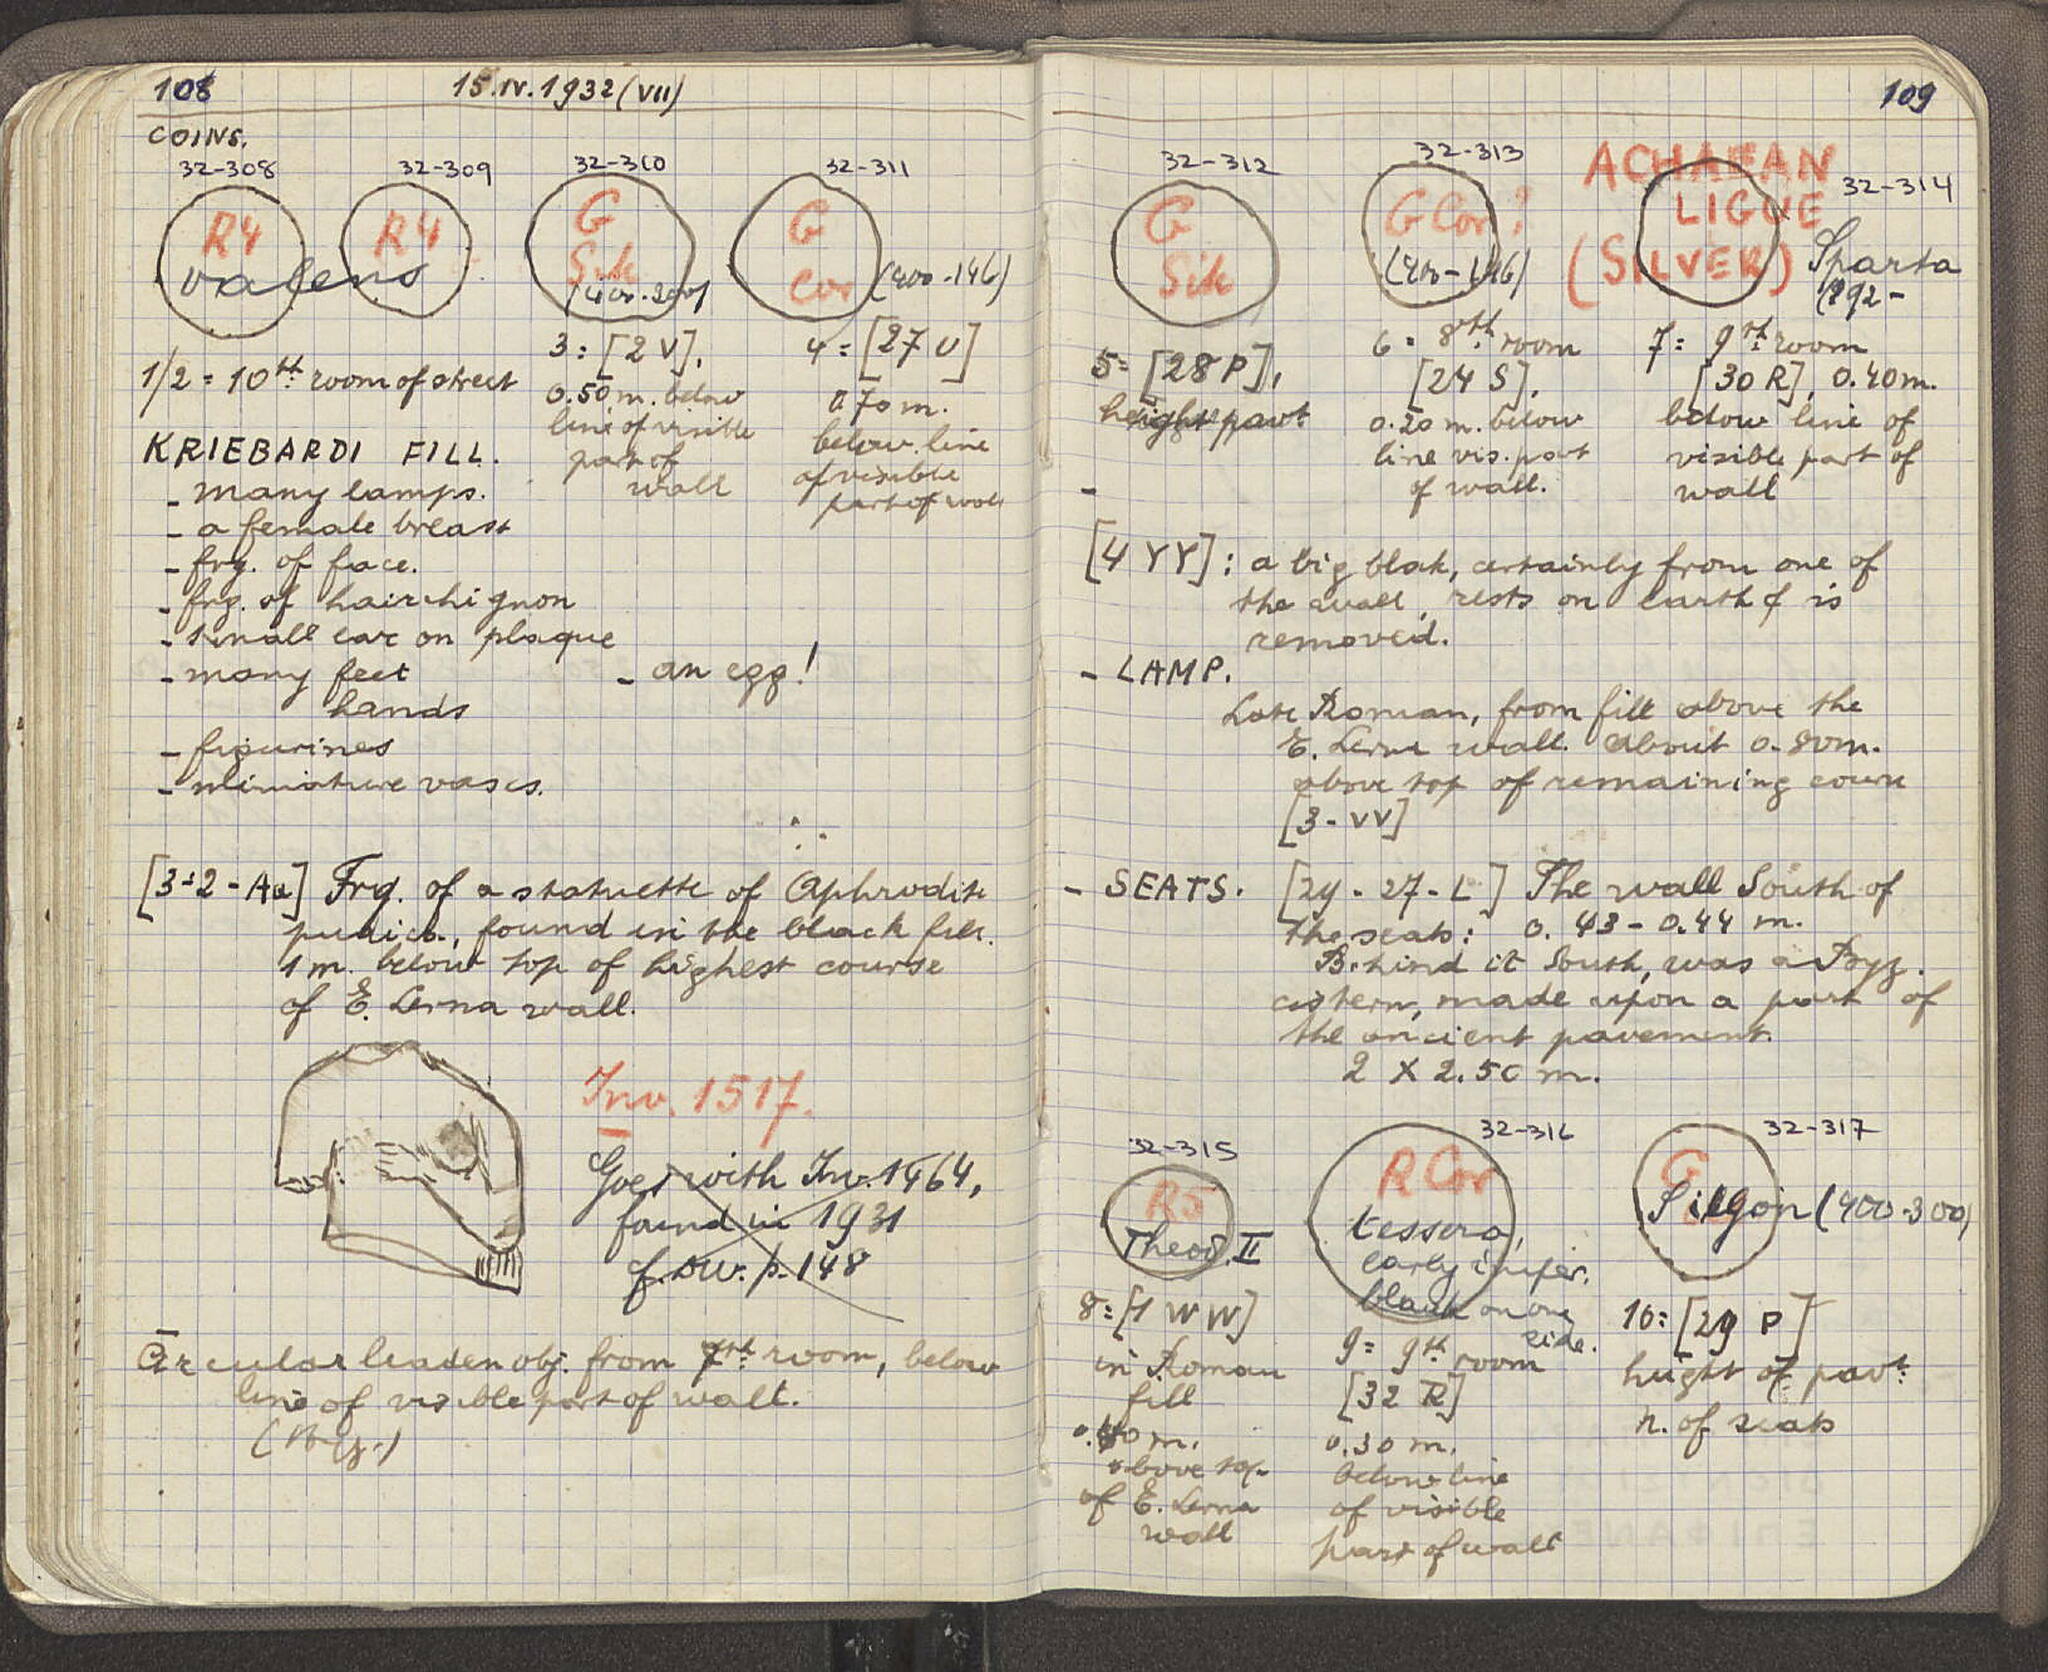 108
15.IV.1932 (VII)
COINS.
32-308
32-309
32-310
32-311
R4
R4
valens
G
Sik
(400-200)
G
Cor
(400-146)
1/2 = 10th room of street
3: [2 V],
0.50 m. below
line of visible
part of
wall
4 = [27 U]
0.70 m.
below line
of visible
part of wall
KRIEBARDI FILL.
- many lamps.
- a female breast
- frg. of face.
- frg. of hairchignon
- small ear on plaque
- many feet
hands
- an egg!
- figurines
- miniature vases.
[3÷2 - Aa] Frg. of a statuette of Aphrodite
pudica, found in the black fill.
1 m. below top of highest course
of E. Lerna wall.
Inv. 1517.
Goes with Inv. 1464,
found in 1931
cf. p. 148
Circular leaden obj. from 7th room, below
line of visible part of wall.
109
32-312
32-313
32-314
G
Sik
G Cor?
(400-146)
ACHAEAN
LIGUE
(SILVER)
Sparta
(192-
5= [28 P],
height pavt
6= 8th room
[24 S],
0.20 m. below
line vis. part
of wall.
7= 9th room
[30 R], 0.40 m.
below line of
visible part of
wall
[4 YY]: a big block, certainly from one of
the wall, rests on earth & is
removed.
- LAMP.
Late Roman, from fill above the
E. Lerna wall. about 0.80m.
above top of remaining course
[3-VV]
- SEATS. [24-27-L] The wall South of
the seats: 0.43-0.44 m.
Behind it South, was a Byz.
cistern, made upon a part of
the ancient pavement.
2 X 2.50 m.
32-315
32-316
32-317
R5
Theod. II
R Cor
tessera,
early imper.
blank on one
side.
G
(400-300)
8: [1 WW]
in Roman
fill
m.
above top
of E. Lerna
wall
9= 9th room
[32 R]
0.30 m.
below line
of visible
part of wall
10: [29 P]
height of pavt.
n. of seats